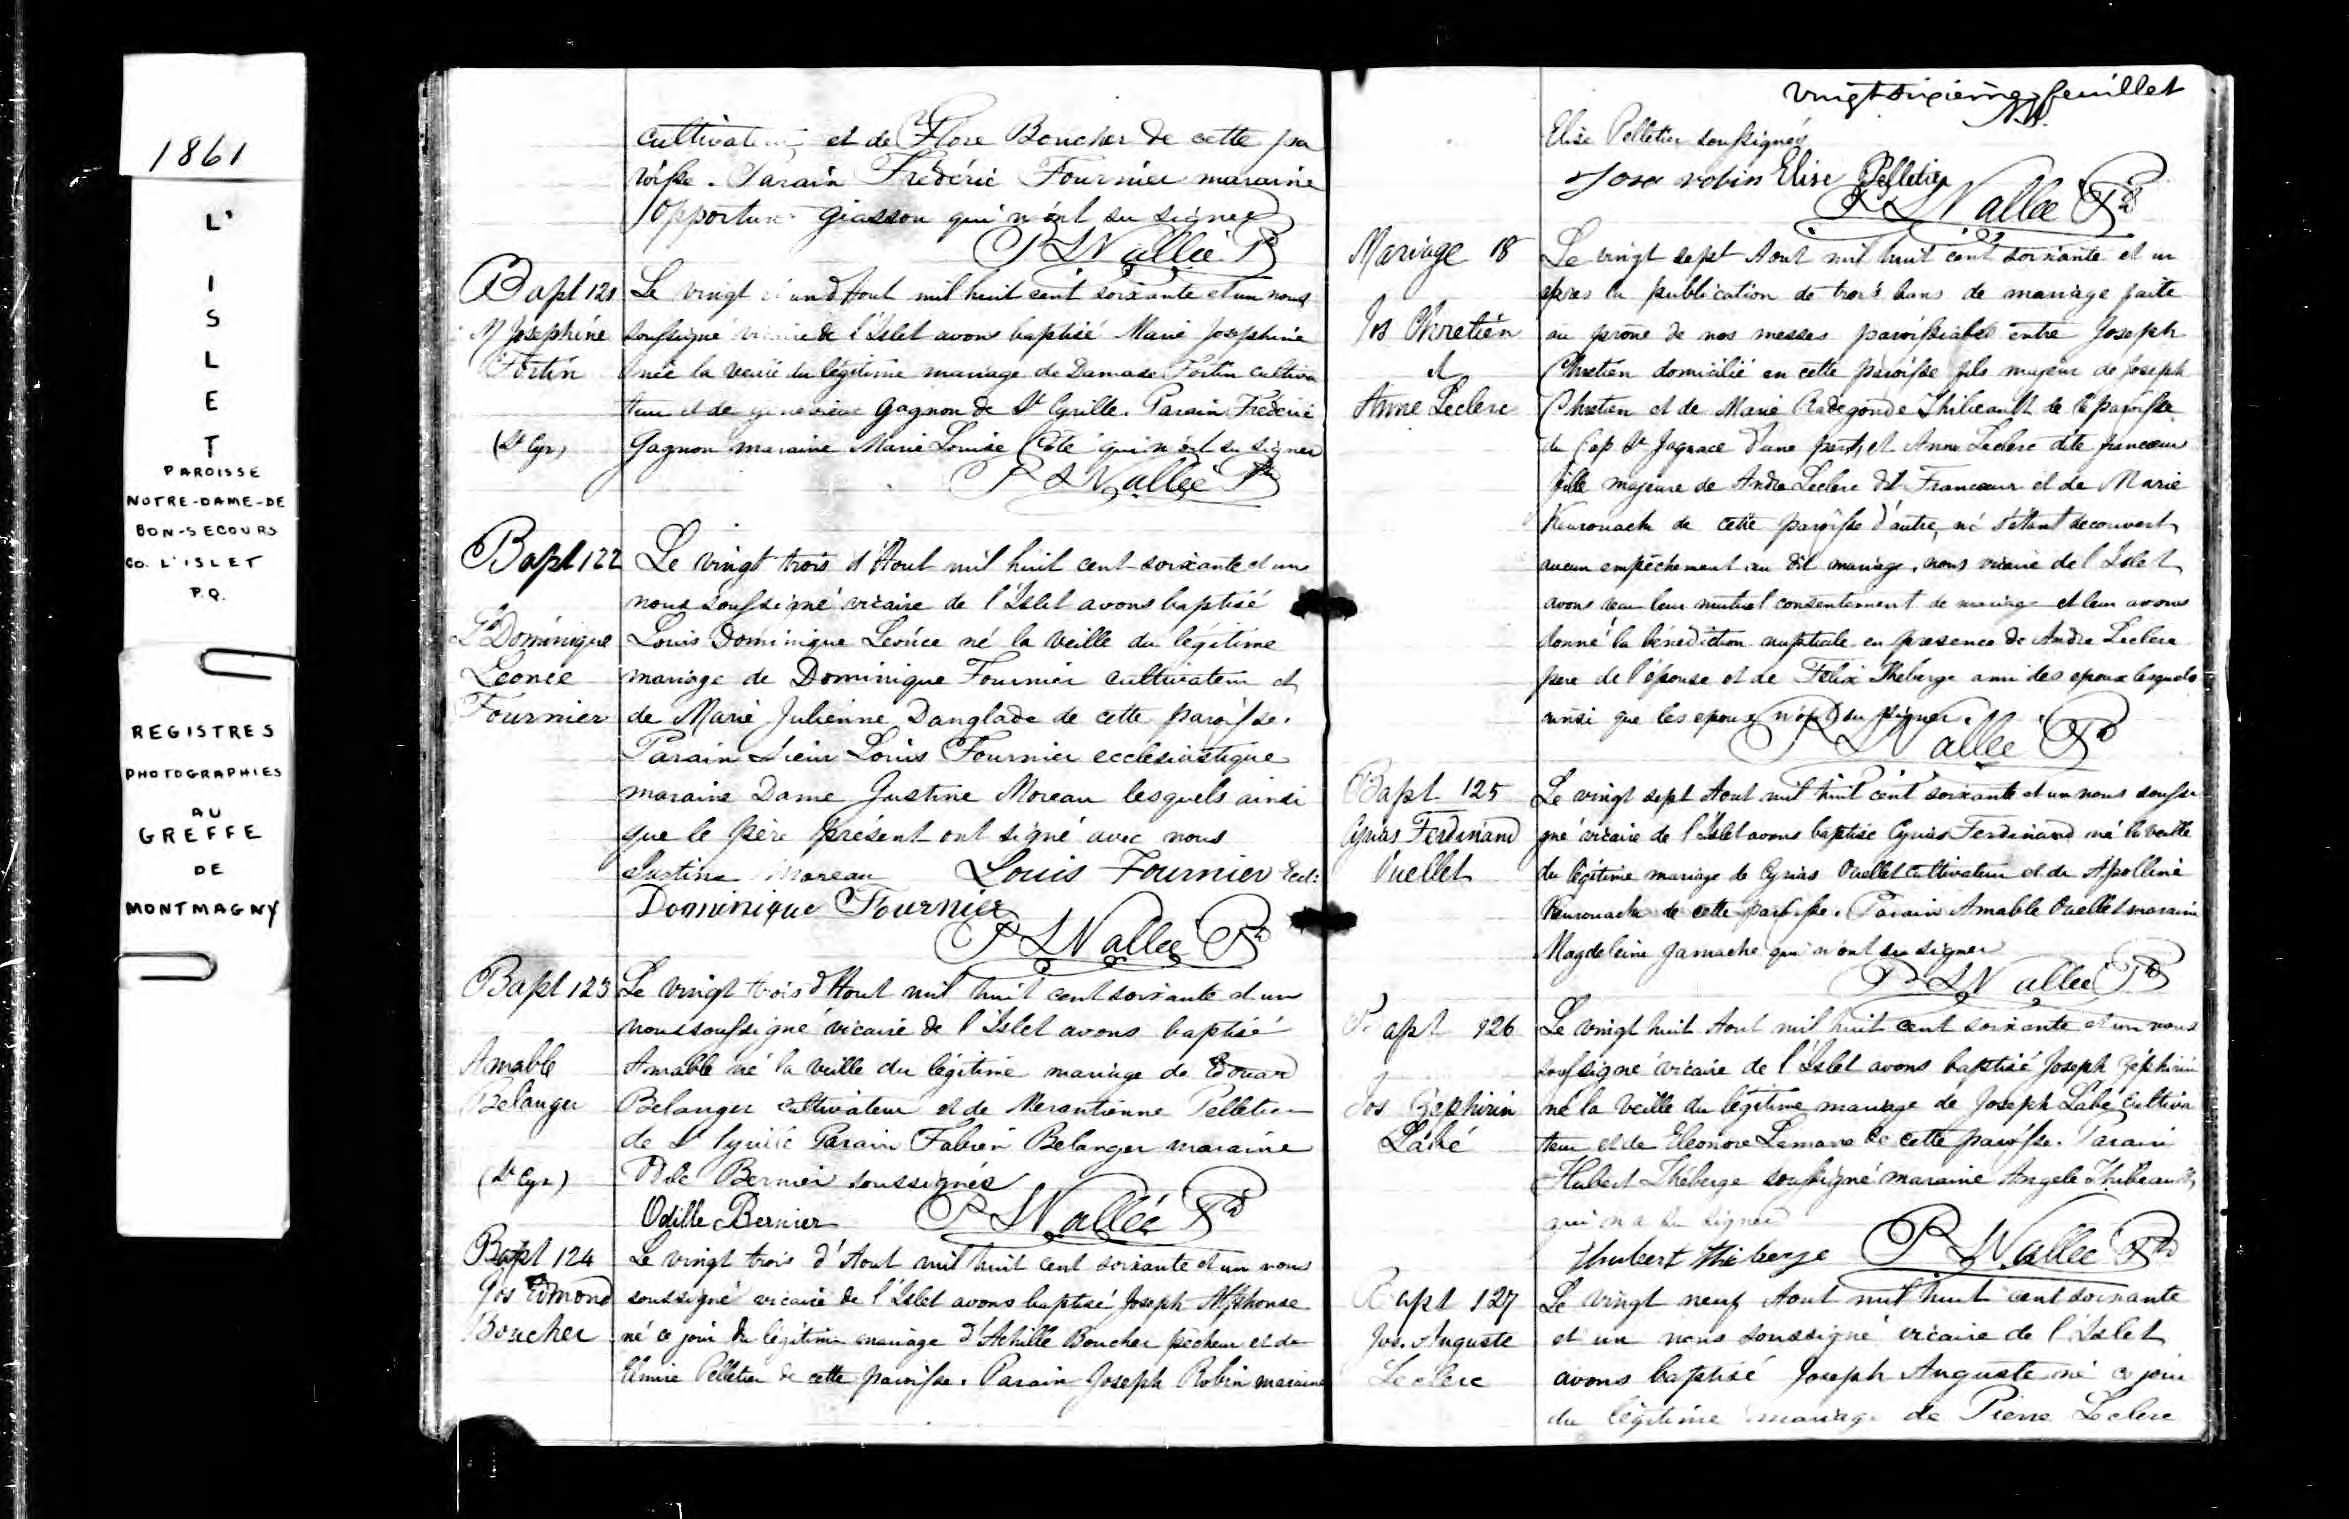 1861
L'
I
S
L
E
T
PAROISSE
NOTRE-DAME-DE
BON-SECOURS
CO. L'ISLET
P.Q.
REGISTRES
PHOTOGRAPHIES
AU
GREFFE
DE
MONTMAGNY
cultivateur et de Flore Boucher de cette pa
roisse. Parain Frédéric Fournier maraine
Opportune Giasson qui n'ont su signer
P L N Vallée Ptre
Bapt 121
M Josephine
Fortin
(St Cyr)
Le vingt et un d'Aout mil huit cent soixante et un nous
soussigné vicaire de l'Islet avons baptisé Marie Josephine
née la veille du légitime mariage de Damase Fortin cultiva
teur et de Genevieve Gagnon de St Cyrille. Parain Fréderic
Gagnon maraine Marie Louise Côté qui n'ont su signer
P L N Vallée Ptre
Bapt 122
Ls Dominique
Leonce
Fournier
Le vingt trois d'Aout mil huit cent soixante et un
nous soussigné vicaire de l'Islet avons baptisé
Louis Dominique Leonce né la veille du légitime
mariage de Dominique Fournier cultivateur et
de Marie Julienne Danglade de cette paroisse.
Parain Sieur Louis Fournier ecclesiastique
maraine Dame Justine Moreau lesquels ainsi
que le père présent ont signé avec nous
Justine Moreau Louis Fournier Eccl:
Dominique Fournier
P L N Vallée Ptre
Bapt 123
Amable
Belanger
(St Cyr)
Le vingt trois d'Aout mil huit cent soixante et un
nous soussigné vicaire de l'Islet avons baptisé
Amable né la veille du légitime mariage de Edouard
Belanger cultivateur et de Merantienne Pelletier
de St Cyrille Parain Fabien Belanger maraine
Bernier soussignés
Odille Bernier P L N Vallée Ptre
Bapt 124
Jos Edmond
Boucher
Le vingt trois d'Aout mil huit cent soixante et un nous
soussigné vicaire de l'Islet avons baptisé Joseph Alphonse
né ce jour du légitime mariage d'Achille Boucher pêcheur et de
Elmire Pelletier de cette paroisse. Parain Joseph Robin maraine
vingt sixième feuillet
Elise Pelletier soussignés
Jose robin Elise Pelletier
P L N Vallée Ptre
Mariage 18
Jos Chretien
et
Anne Leclerc
Le vingt sept Aout mil huit cent soixante et un
apres la publication de trois bans de mariage faite
au prône de nos messes paroissiales entre Joseph
Chretien domicilié en cette paroisse fils majeur de Joseph
Chretien et de Marie Radegonde Thibeault de la paroisse
du Cap St Ignace d'une part, et Anne Leclerc dite francoeur
fille majeure de Andre Leclerc dit Francoeur et de Marie
Kerouack de cette paroisse d'autre, ne s'étant decouvert
aucun empêchement au dit mariage, nous vicaire de l'Islet
avons reçu leur mutuel consentement de mariage et leur avons
donné la bénédiction nuptiale en presence de Andre Leclerc
pere de l'épouse et de Felix Theberge ami des epoux lesquels
ainsi que les epoux n'ont su signer.
P L N Vallée Ptre
Bapt 125
Cyrias Ferdinand
Ouellet
Le vingt sept Aout mil huit cent soixante et un nous soussi
gné vicaire de l'Islet avons baptisé Cyrias Ferdinand né la veille
du légitime mariage de Cyrias Ouellet cultivateur et de Apolline
Kerouack de cette paroisse. Parain Amable Ouellet maraine
Magdeleine Gamache qui n'ont su signer
P L N Vallée Ptre
Bapt 126
Jos Zephirin
Labé
Le vingt huit Aout mil huit cent soixante et un nous
soussigné vicaire de l'Islet avons baptisé Joseph Zéphirin
né la veille du légitime mariage de Joseph Labé cultiva
teur et de Eleonore Lemare de cette paroisse. Parain
Hubert Théberge soussigné maraine Angele Thibeault
qui n'a su signer
Hubert theberge P L N Vallée Ptre
Bapt 127
Jos. Auguste
Leclerc
Le vingt neuf Aout mil huit cent soixante
et un nous soussigné vicaire de l'Islet
avons baptisé Joseph Auguste né ce jour
du légitime mariage de Pierre Leclerc